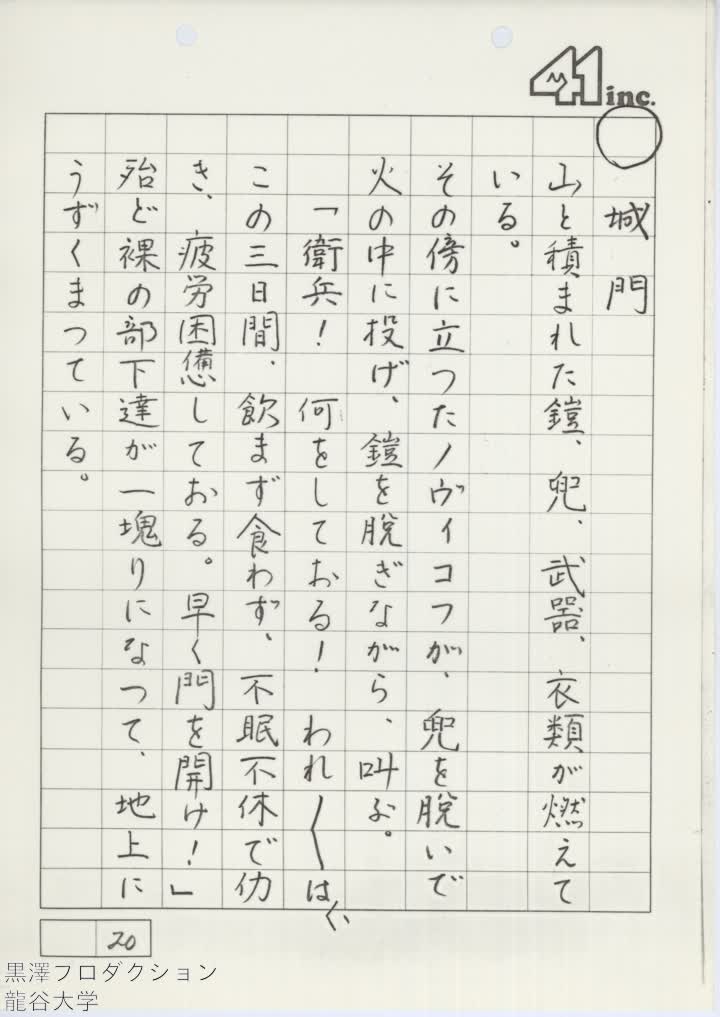 41 inc.
○
城門
山と積まれた鎧、兜、武器、衣類が燃えて
いる。
その傍に立つたノヴィコフが、兜を脱いで
火の中に投げ、鎧を脱ぎながら、叫ぶ。
「衛兵！何をしておる！われ〳〵は
この三日間、飲まず食わず、不眠不休で仂
き、疲労困憊しておる。早く門を開け！」
殆ど裸の部下達が一塊りになつて、地上に
うずくまつている。
20
黒澤プロダクション
龍谷大学